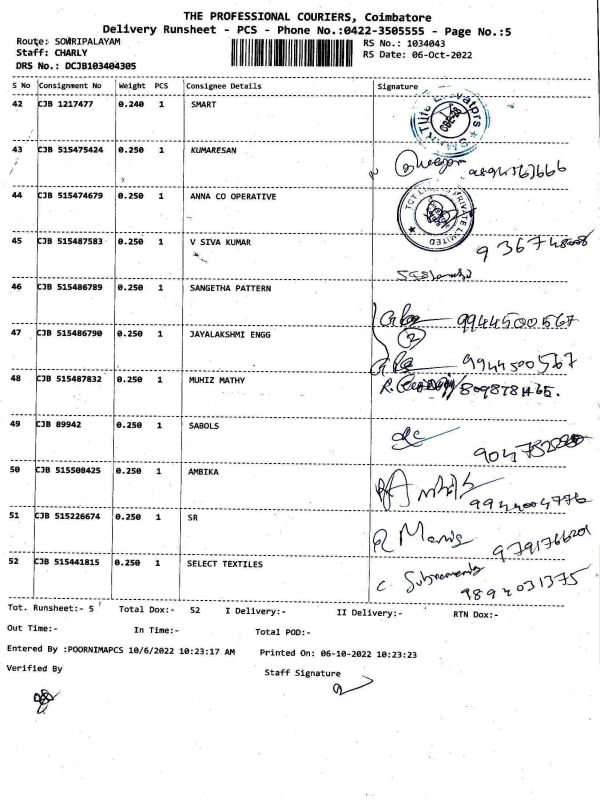 THE PROFESSIONAL COURIERS, Coimbatore
Delivery Runsheet - PCS - Phone No.:0422-3505555 - Page No.:5
Route: SOWRIPALAYAM RS No.: 1034043
Staff: CHARLY RS Date: 06-Oct-2022
DRS No.: DCJB103404305
S No Consignment No Weight PCS Consignee Details Signature
42 CJB 1217477 0.240 1 SMART
43 CJB 515475424 0.250 1 KUMARESAN
44 CJB 515474679 0.250 1 ANNA CO OPERATIVE
TCT PRIVATE LIMITED
45 CJB 515487583 0.250 1 V SIVA KUMAR
46 CJB 515486789 0.250 1 SANGETHA PATTERN
9944500567
47 CJB 515486790 0.250 1 JAYALAKSHMI ENGG
2
9944500567
48 CJB 515487832 0.250 1 MUHIZ MATHY
49 CJB 89942 0.250 1 SABOLS
50 CJB 515508425 0.250 1 AMBIKA
9944004776
51 CJB 515226674 0.250 1 SR
9791766201
52 CJB 515441815 0.250 1 SELECT TEXTILES
9894031375
Tot. Runsheet:- 5 Total Dox:- 52 I Delivery:- II Delivery:- RTN Dox:-
Out Time:- In Time:- Total POD:-
Entered By :POORNIMAPCS 10/6/2022 10:23:17 AM Printed On: 06-10-2022 10:23:23
Verified By Staff Signature